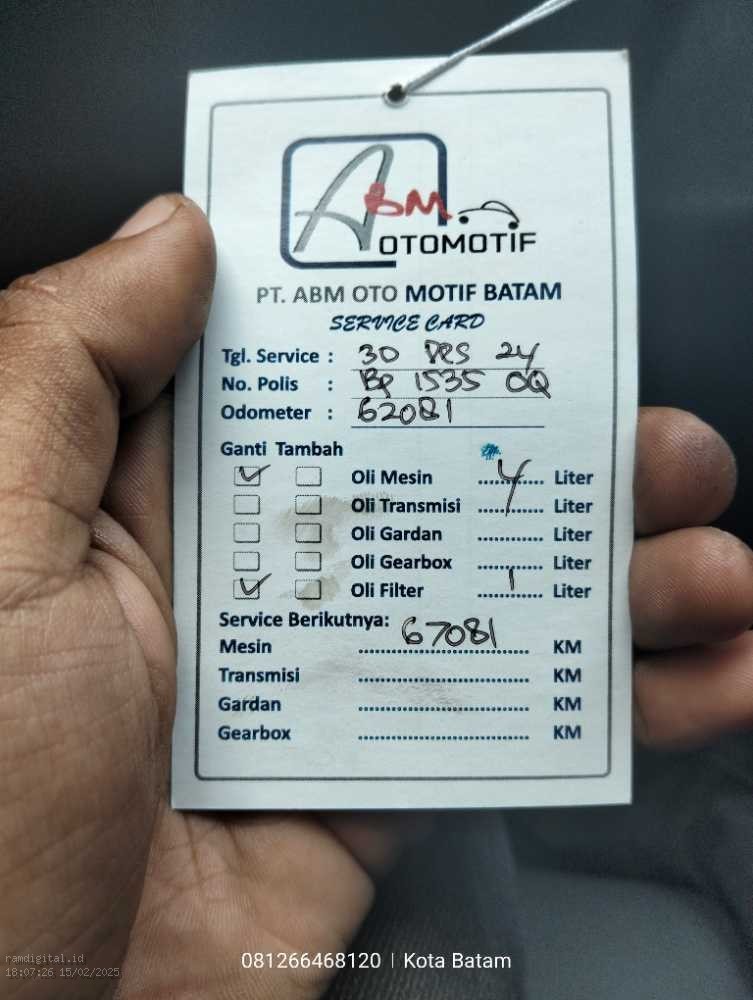 ABM
OTOMOTIF
PT. ABM OTO MOTIF BATAM
SERVICE CARD
Tgl. Service : 30 DES 24
No. Polis : BP 1535 OQ
Odometer : 62081
Ganti Tambah
Oli Mesin 4 Liter
Oli Transmisi ............ Liter
Oli Gardan ............ Liter
Oli Gearbox ............ Liter
Oli Filter 1 Liter
Service Berikutnya:
Mesin 67081 KM
Transmisi ............ KM
Gardan ............ KM
Gearbox ............ KM
081266468120 | Kota Batam
ramdigital.id
18:07:26 15/02/2025